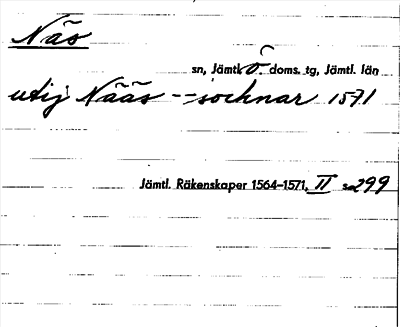 Näs
sn, Jämtl. Ö. doms. tg, Jämtl. län
utij Nääs -- socknar 1571
Jämtl. Räkenskaper 1564–1571, II s. 299